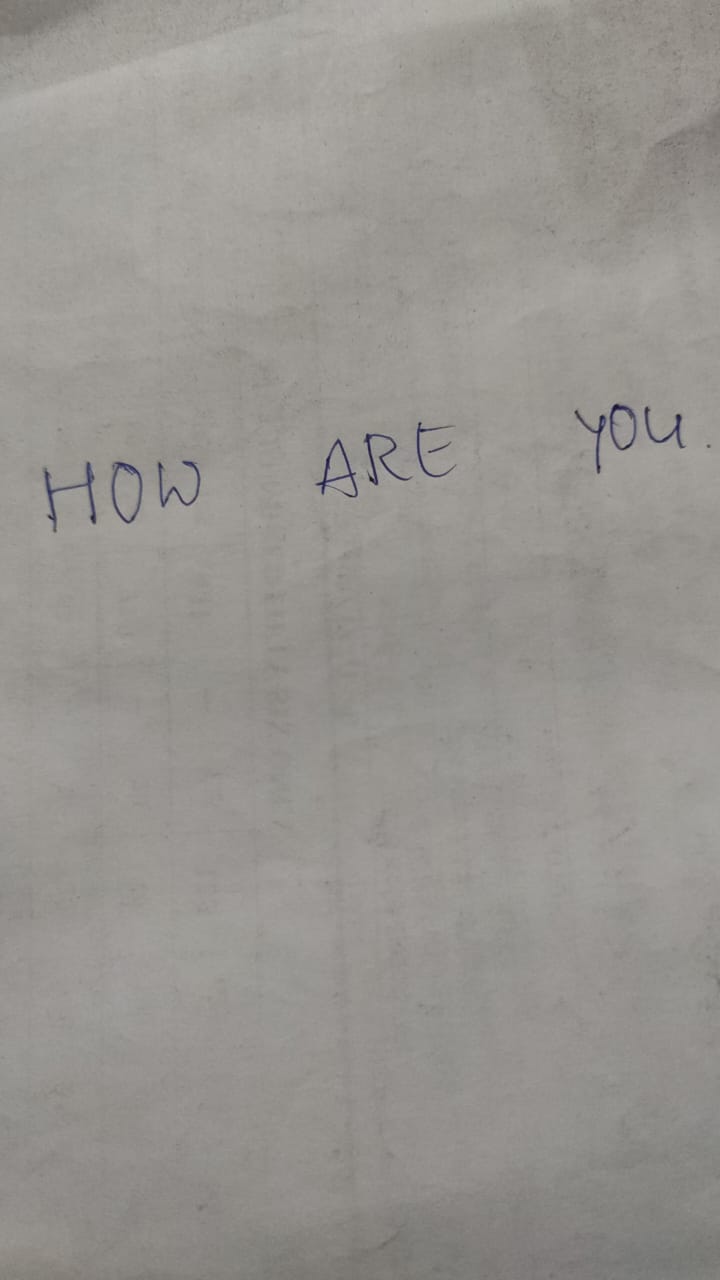 HOW ARE YOU.